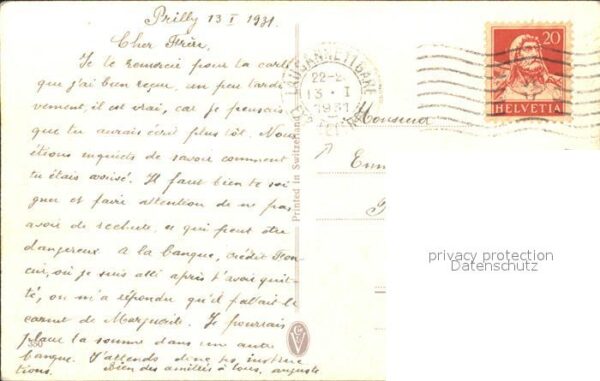 Prilly 13 I 1931.
Cher Frère,
Je te remercie pour la carte
que j'ai bien reçue, un peu tardi
vement, il est vrai, car je pensais
que tu aurais écrit plus tôt. Nous
étions inquiets de savoir comment
tu étais arrivé. Il faut bien te soi
gner et faire attention de ne pas
avoir de rechute, ce qui peut être
dangereux. A la banque, crédit Fon
cier, où je suis allé après t'avoir quit
té, on m'a répondu qu'il fallait le
carnet de Marguerite. Je pourrais
placer la somme dans une autre
banque. J'attends donc tes instruc
tions. Bien des amitiés à tous, auguste
350
Printed in Switzerland
LAUSANNE 1 GARE
22-2
13. I
1931
20
HELVETIA
Monsieur
privacy protection
Datenschutz